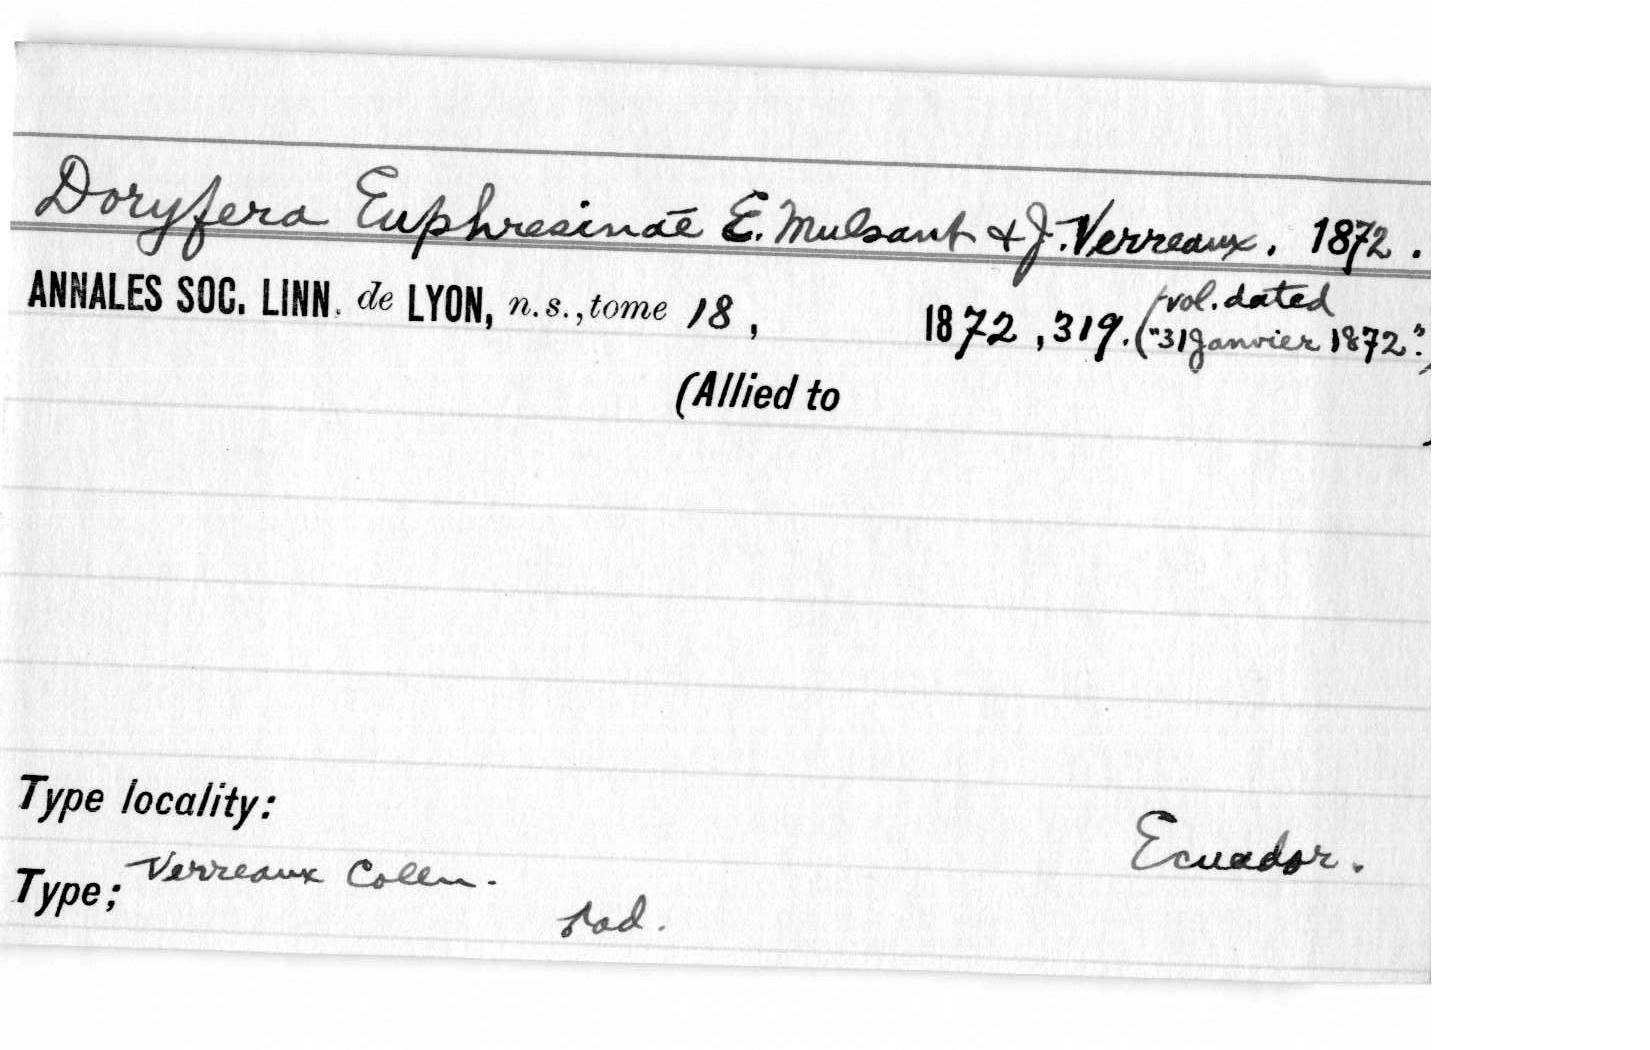 Doryfera Euphresinae E. Mulsant & J. Verreaux. 1872.
ANNALES SOC. LINN. de LYON, n.s., tome 18, 1872, 319. (vol. dated
"31 Janvier 1872".)
(Allied to )
Type locality: Ecuador.
Type; Verreaux Colln.
♂ ad.